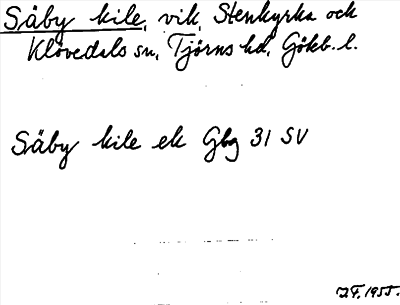 Säby kile, vik, Stenkyrka och
Klövedals sn, Tjörns hd, Göteb. l.
Säby kile ek Gbg 31 SV
1955.